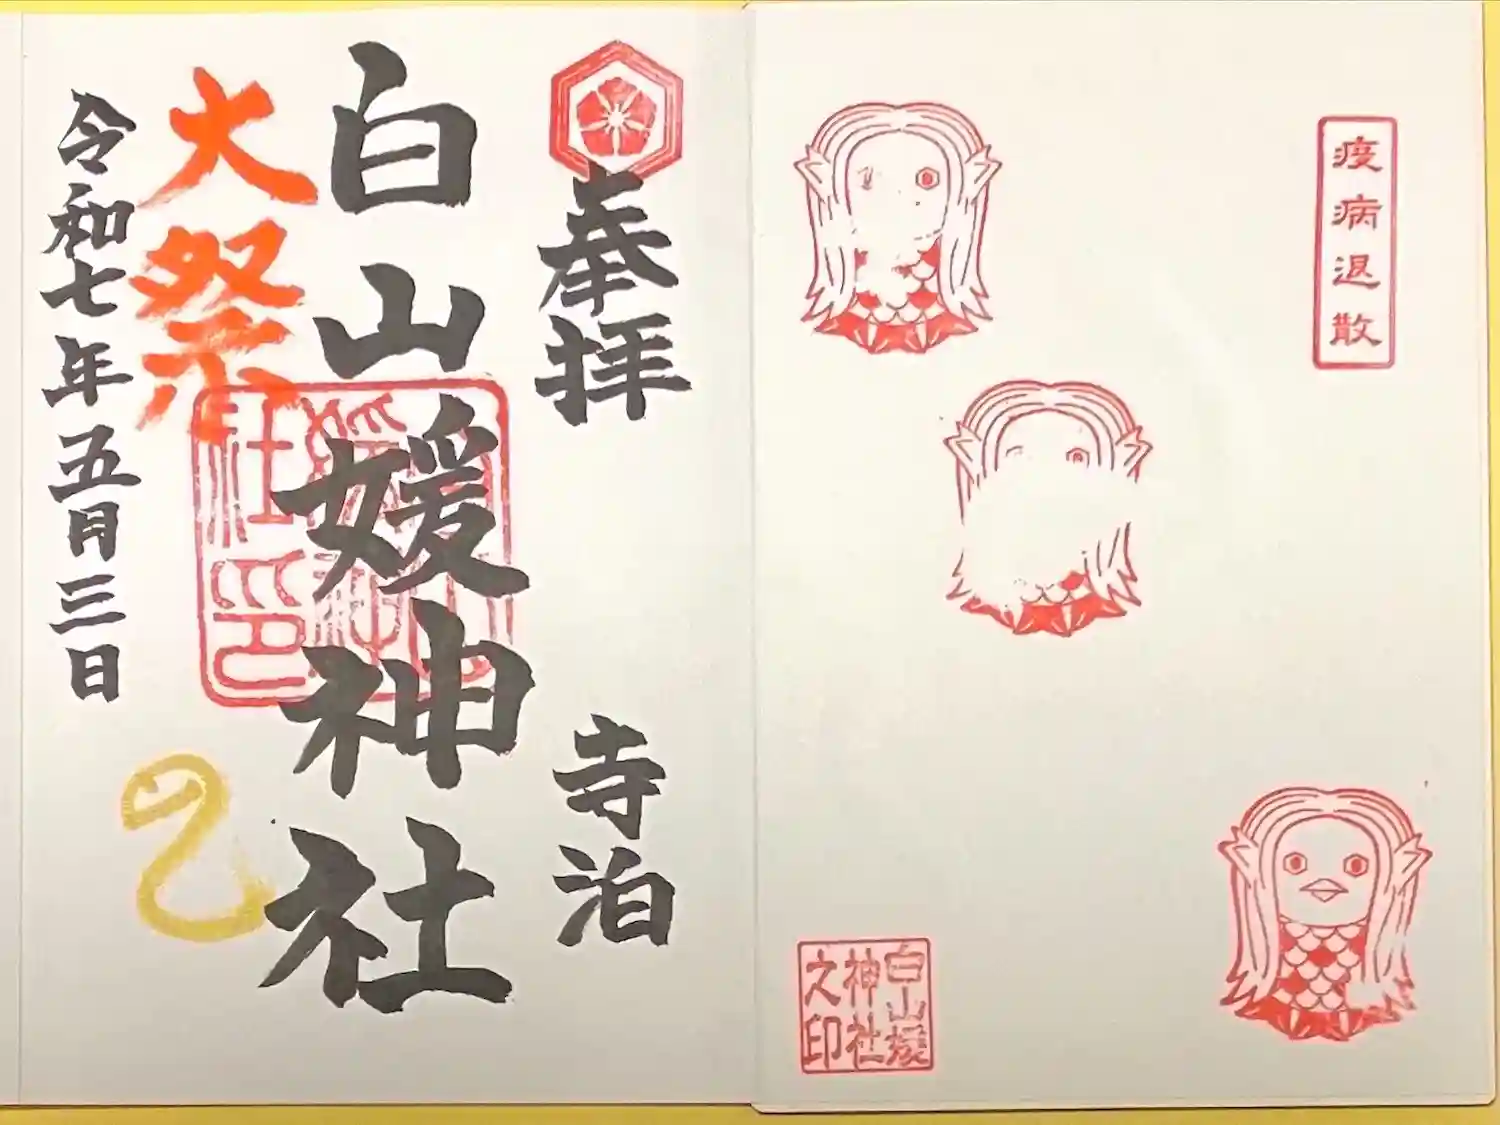 疫病退散
白山媛
神社
之印
奉拝
寺泊
白山媛神社
大祭
令和七年五月三日
社印